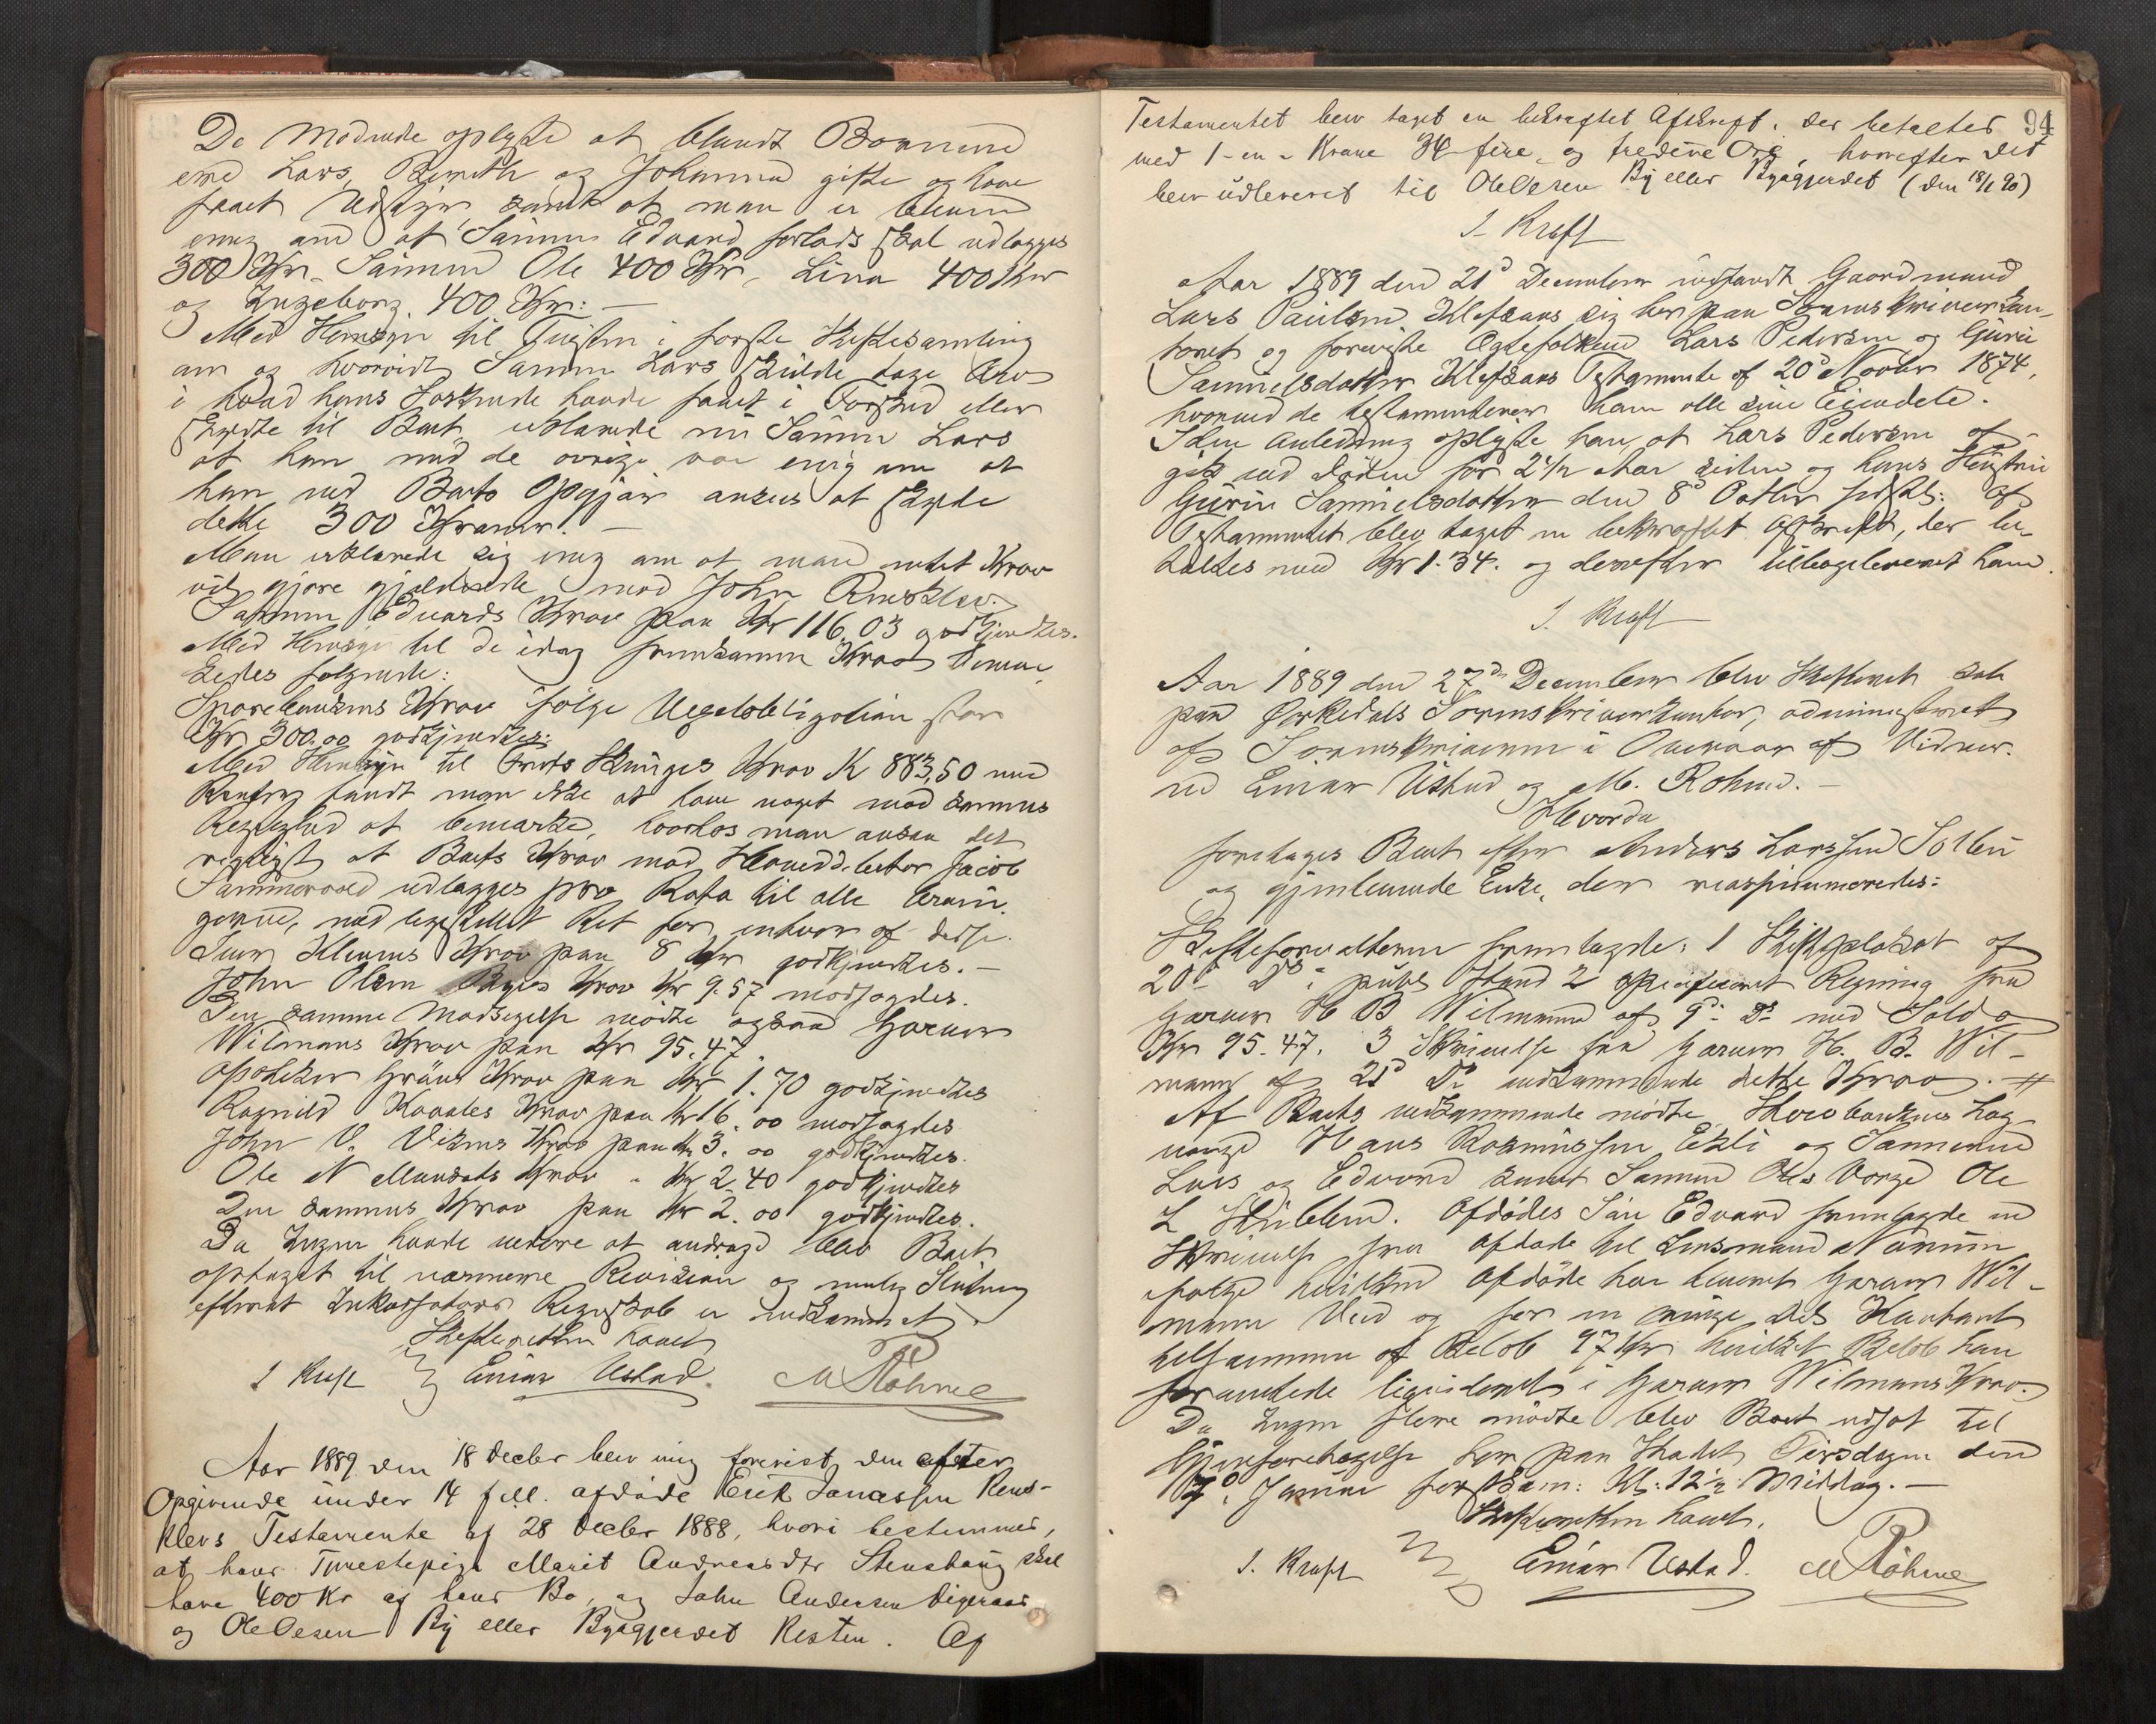 De Mødende oplyste at blandt Børnene
ere Lars, Bereth og Johanna gifte og have
faaet Udstyr, samt at man er bleven
enig om at Sønnen Edvard forlods skal udlægges
300 Kr. Sønnen Ole 400 Kr, Lina 400 Kr
og Ingeborg 400 Kr: —
Med Hensyn til Tvisten i første Skiftesamling
om og hvorvidt Sønnen Lars skulde tage Arv
i hvad hans Søskende havde faaet i Forskud eller
skyldte til Boet erklærede nu Sønnen Lars
at han med de øvrige var enig om at
han ved Boets Opgjør ansees at skylde
dette 300 Kroner. —
Man erklærede sig enig om at man intet Krav
vil gjøre gjældende mod John Rensklev.
Sønnen Edvards Krav paa Kr 116.03 godkjendtes.
Med Hensyn til de idag fremkomne Krav bemær-
kedes følgende:
Sparebankens Krav ifølge Vexelobligation stor
Kr 300.00 godkjendtes.
Med Hensyn til Skinges Krav K 883,50 med
Renter fandt man ikke at have noget mod sammes
Rigtighed at bemærke, hvorhos man ansaa det
rigtigst at Boets Krav mod Hoveddebitor Jacob
Sammervold udlægges pro Rata til alle Arvin-
gerne, med ligestillet Ret for enhver af disse.
Krav paa 8 Kr godkjendtes. —
John Olsen Krav Kr 9.57 modsagdes.
Den samme Modsigelse mødte ogsaa Garver
Wilmans Krav paa Kr 95.47.
Apotheker Gräns Krav paa Kr 1.70 godkjendtes
Ragnild Krav paa Kr 16.00 modsagdes
John O. Vikens Krav paa Kr 3.00 godkjendtes.
Ole N Krav " Kr 2.40 godkjendtes
Den sammes Krav paa Kr 2.00 godkjendtes.
Da Ingen havde videre at andrage blev Boet
optaget til nærmere Revision og mulig Slutning
efterat Inkassators Regnskab er indkommet.
Skifteretten hævet
I Kraft Einar Ustad. M Röhme
Aar 1889 den 18 Decbr blev mig forevist den efter
Opgivende under 14 f.M. afdøde Erik Jonassen Rens-
klevs Testamente af 28 Decbr 1888, hvori bestemmes,
at hans Tjenestepige Marit Andreasdtr Stenshaug skal
have 400 Kr af hans Bo, og John Andersen Digeraas
og Ole Olesen By eller Byagjerdet Resten. Af
94
Testamentet blev taget en bekræftet Afskrift, der betaltes
med 1 - en - Krone 34 fire og tredeve Øre, hvorefter det
blev udleveret til Ole Olesen By eller Byagjerdet (den 18/1 90)
I. Kraft
Aar 1889 den 21d December indfandt Gaardmand
Lars Paulsen Klefsaas sig her paa Sorenskriverkon-
toret og foreviste Ægtefolkene Lars Pedersen og Guru
Samuelsdatter Klefsaas Testamente af 20d Novbr 1874,
hvorved de testamenterer ham alle sine Eiendele.
I den Anledning oplyste han, at Lars Pedersen af-
gik ved Døden for 2 1/2 Aar siden og hans Hustru
Guru Samuelsdatter den 8d Octbr sidstl: Af
Testamentet blev taget en bekræftet Afskrift, der be-
taltes med Kr 1.34. og derefter tilbageleveret ham.
I. Kraft
Aar 1889 den 27d December blev Skifteret sat
paa Orkedals Sorenskriverkontor, administreret
af Sorenskriveren i Overvær af Vidner-
ne Einar Ustad og M. Röhme. —
Hvorda
foretages Boet efter Anders Larssen Solli
og gjenlevende Enke, der reassumeredes:
Skifteforvalteren fremlagde: 1 Skifteplakat af
20d Ds i publ. Stand 2 specificeret Regning fra
Garver H B Wilmann af 9d Ds med Saldo
Kr 95.47. 3 Skrivelse fra Garver H. B. Wil-
mann af 21d Ds vedkommende dette Krav. #
Af Boets vedkommende mødte Laug-
værge Hans Rasmussen Ekli og Sønnerne
Lars og Edvard samt Sønnen Oles Værge Ole
L. Afdødes Søn Edvard fremlagde en
Skrivelse fra Afdøde til Lensmand
ifølge hvilken Afdøde har leveret Garver Wil-
mann Ved og for en
af Beløb 97 Kr hvilket Beløb han
formentlig liqvideret i Garver Wilmans Krav.
Da Ingen flere mødte blev Boet udsat til
Gjenforetagelse her paa Stedet Tirsdagen den
7d Januar førstkom: Kl: 12 1/2 Middag. —
Skifteretten hævet.
I. Kraft Einar Ustad. M Röhme